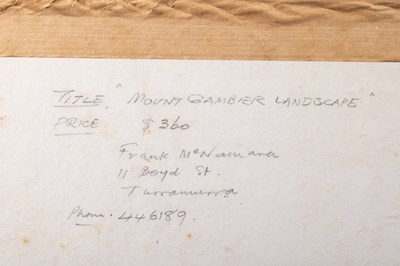 TITLE. "MOUNT GAMBIER LANDSCAPE"
PRICE. $360
Frank McNamara
11 Boyd St.
Turramurra
Phone. 446189.